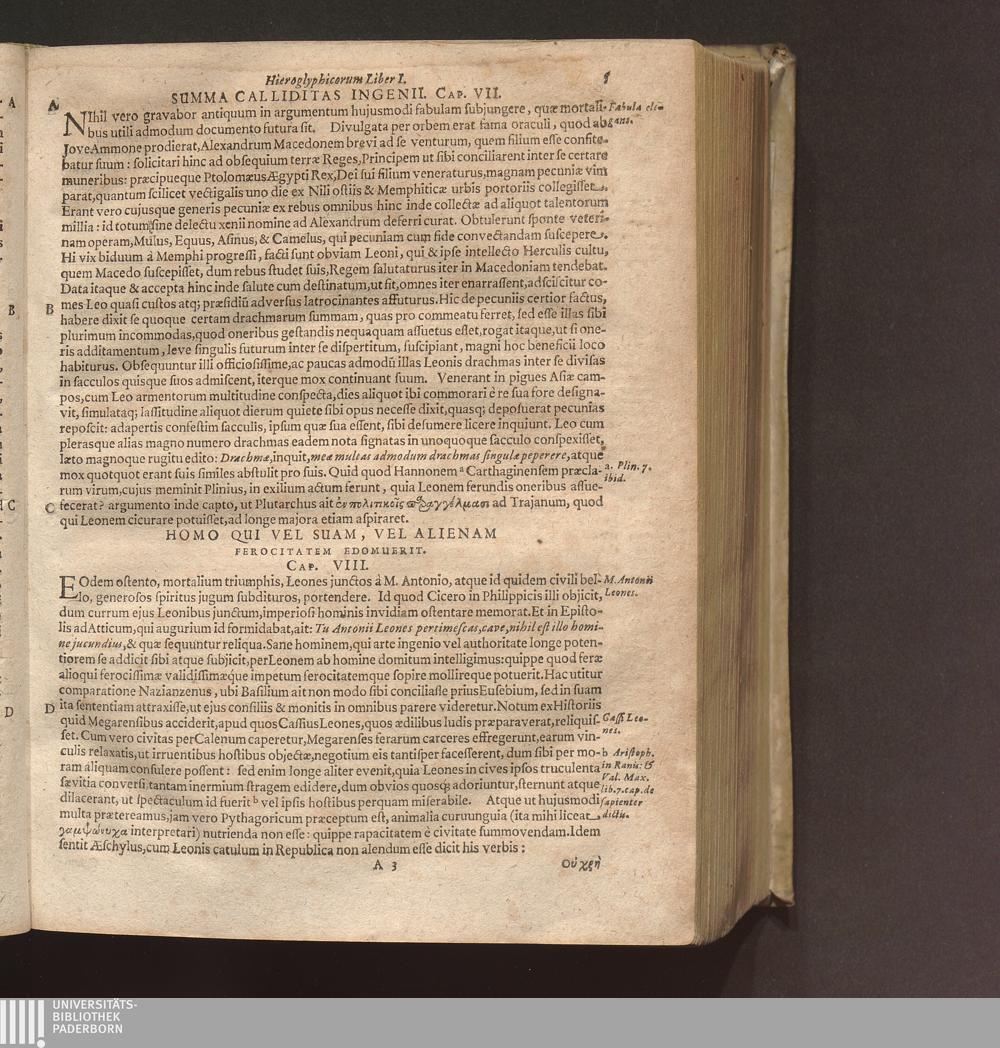 Hieroglyphicorum Liber I. 5
SUMMA CALLIDITAS INGENII. CAP. VII.
A NIhil vero gravabor antiquum in argumentum hujusmodi fabulam ſubjungere, quæ mortali- Fabula ele-
bus utili admodum documento futura ſit. Divulgata per orbem erat fama oraculi, quod ab gans.
Jove Ammone prodierat, Alexandrum Macedonem brevi ad ſe venturum, quem filium eſſe confite-
batur ſuum: ſolicitari hinc ad obſequium terræ Reges, Principem ut ſibi conciliarent inter ſe certare
muneribus: præcipueque Ptolomæus Ægypti Rex, Dei ſui filium veneraturus, magnam pecuniæ vim
parat, quantum ſcilicet vectigalis uno die ex Nili oſtiis & Memphiticæ urbis portoriis collegiſſet.
Erant vero cujusque generis pecuniæ ex rebus omnibus hinc inde collectæ ad aliquot talentorum
millia: id totum ſine delectu xenii nomine ad Alexandrum deferri curat. Obtulerunt ſponte veteri-
nam operam, Mulus, Equus, Aſinus, & Camelus, qui pecuniam cum fide convectandam ſuſcepere.
Hi vix biduum à Memphi progreſſi, facti ſunt obviam Leoni, qui & ipſe intellecto Herculis cultu,
quem Macedo ſuſcepiſſet, dum rebus ſtudet ſuis, Regem ſalutaturus iter in Macedoniam tendebat.
Data itaque & accepta hinc inde ſalute cum deſtinatum, ut fit, omnes iter enarraſſent, adſciſcitur co-
B mes Leo quaſi cuſtos atq; præſidiũ adverſus latrocinantes affuturus. Hic de pecuniis certior factus,
habere dixit ſe quoque certam drachmarum ſummam, quas pro commeatu ferret, ſed eſſe illas ſibi
plurimum incommodas, quod oneribus geſtandis nequaquam aſſuetus eſſet, rogat itaque, ut ſi one-
ris additamentum, leve ſingulis futurum inter ſe diſpertitum, ſuſcipiant, magni hoc beneficii loco
habiturus. Obſequuntur illi officioſiſſime, ac paucas admodũ illas Leonis drachmas inter ſe diviſas
in ſacculos quisque ſuos admiſcent, iterque mox continuant ſuum. Venerant in pigues Aſiæ cam-
pos, cum Leo armentorum multitudine conſpecta, dies aliquot ibi commorari è re ſua fore deſigna-
vit, ſimulataq; laſſitudine aliquot dierum quiete ſibi opus neceſſe dixit, quasq; depoſuerat pecunias
repoſcit: adapertis confeſtim ſacculis, ipſum quæ ſua eſſent, ſibi deſumere licere inquiunt. Leo cum
plerasque alias magno numero drachmas eadem nota ſignatas in unoquoque ſacculo conſpexiſſet,
læto magnoque rugitu edito: Drachmæ, inquit, meæ multas admodum drachmas ſingulæ peperere, atque
mox quotquot erant ſuis ſimiles abſtulit pro ſuis. Quid quod Hannonem a Carthaginenſem præcla- a. Plin. 7.
rum virum, cujus meminit Plinius, in exilium actum ferunt, quia Leonem ferundis oneribus aſſue- ibid.
C fecerat? argumento inde capto, ut Plutarchus ait ἐν πολιτικοῖς παραγγέλμασι ad Trajanum, quod
qui Leonem cicurare potuiſſet, ad longe majora etiam aſpiraret.
HOMO QUI VEL SUAM, VEL ALIENAM
FEROCITATEM EDOMUERIT.
CAP. VIII.
EOdem oſtento, mortalium triumphis, Leones junctos à M. Antonio, atque id quidem civili bel- M. Antonii
lo, generoſos ſpiritus jugum ſubdituros, portendere. Id quod Cicero in Philippicis illi objicit, Leones.
dum currum ejus Leonibus junctum, imperioſi hominis invidiam oſtentare memorat. Et in Epiſto-
lis ad Atticum, qui augurium id formidabat, ait: Tu Antonii Leones pertimeſcas, cave, nihil eſt illo homi-
ne jucundius, & quæ ſequuntur reliqua. Sane hominem, qui arte ingenio vel authoritate longe poten-
tiorem ſe addicit ſibi atque ſubjicit, per Leonem ab homine domitum intelligimus: quippe quod feræ
alioqui ferociſſimæ validiſſimæque impetum ferocitatemque ſopire mollireque potuerit. Hac utitur
comparatione Nazianzenus, ubi Baſilium ait non modo ſibi conciliaſſe prius Euſebium, ſed in ſuam
D ita ſententiam attraxiſſe, ut ejus conſiliis & monitis in omnibus parere videretur. Notum ex Hiſtoriis
quid Megarenſibus acciderit, apud quos Caſſius Leones, quos ædilibus ludis præparaverat, reliquiſ- Caſſi Leo-
ſet. Cum vero civitas per Calenum caperetur, Megarenſes ferarum carceres effregerunt, earum vin- nes.
culis relaxatis, ut irruentibus hoſtibus objectæ, negotium eis tantiſper faceſſerent, dum ſibi per mo- b Ariſtoph.
ram aliquam conſulere poſſent: ſed enim longe aliter evenit, quia Leones in cives ipſos truculenta in Ranis: &
ſævitia converſi, tantam inermium ſtragem edidere, dum obvios quosq; adoriuntur, ſternunt atque Val. Max.
dilacerant, ut ſpectaculum id fuerit b vel ipſis hoſtibus perquam miſerabile. Atque ut hujusmodi lib. 7. cap. de
multa prætereamus, jam vero Pythagoricum præceptum eſt, animalia curuunguia (ita mihi liceat ſapienter
γαμψώνυχα interpretari) nutrienda non eſſe: quippe rapacitatem è civitate ſummovendam. Idem dictis.
ſentit Æſchylus, cum Leonis catulum in Republica non alendum eſſe dicit his verbis:
A 3 Οὐ χρὴ
UNIVERSITÄTS-
BIBLIOTHEK
PADERBORN